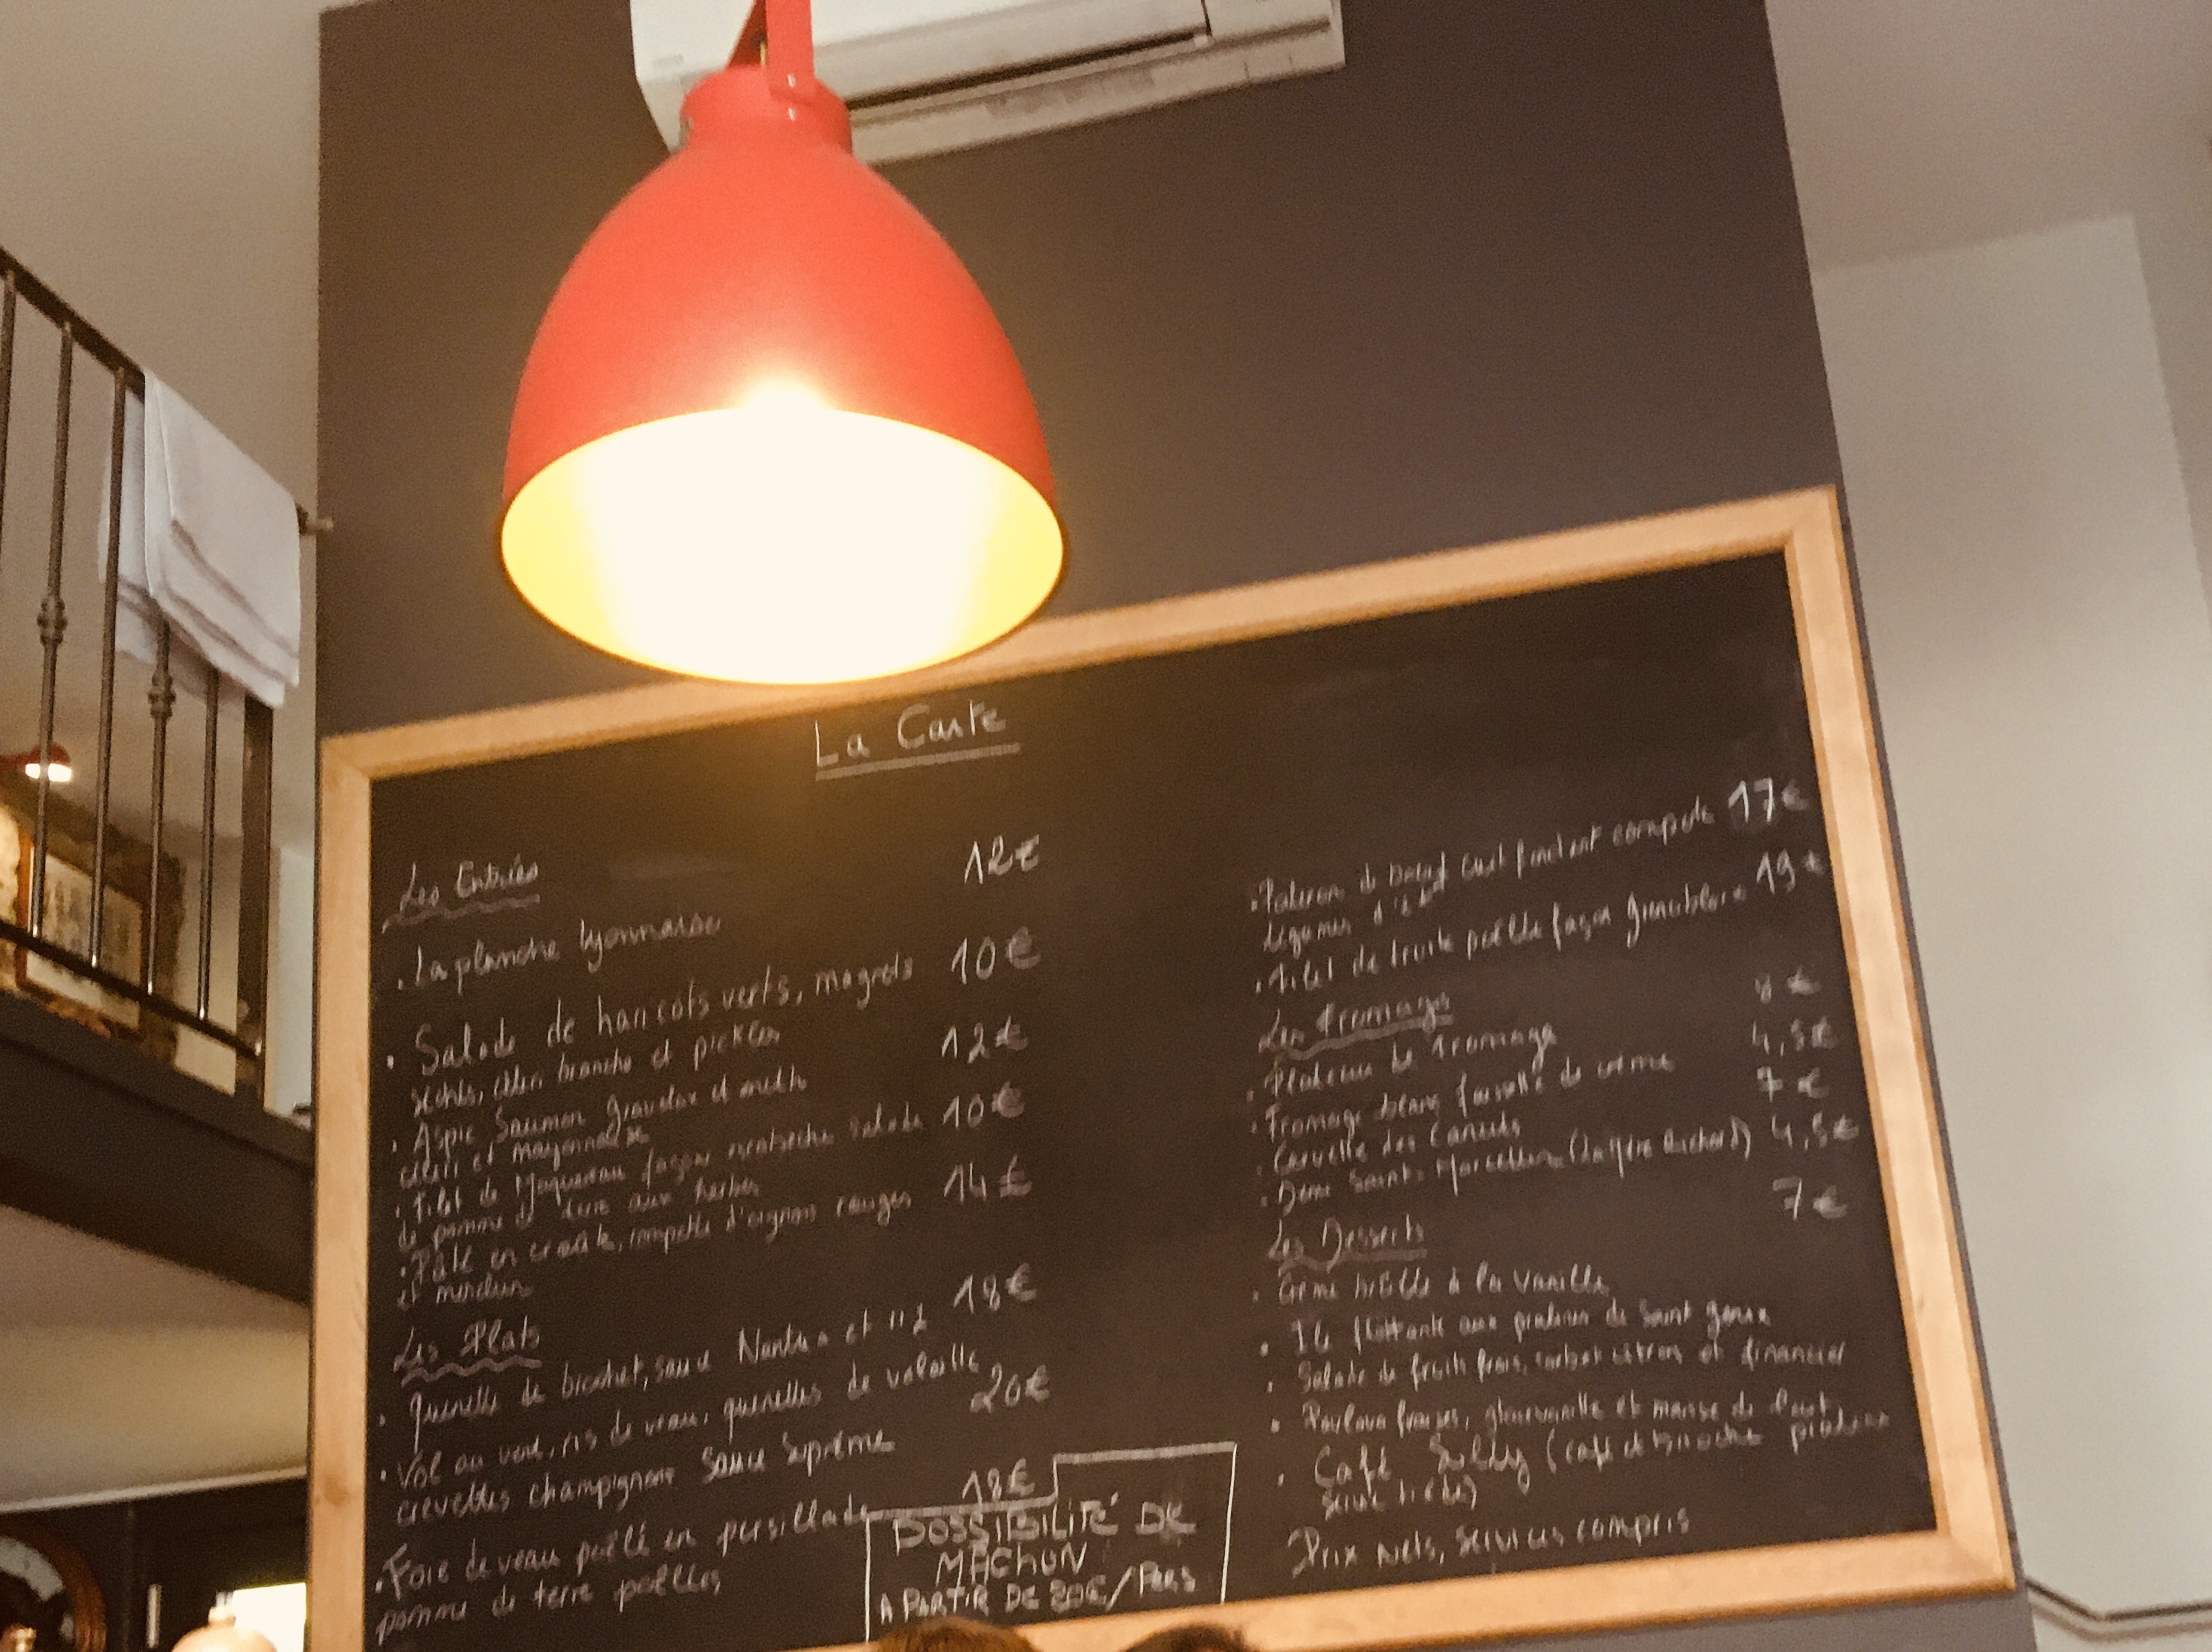 La Carte
Les Entrées
12€
. La planche lyonnaise
. Salade de haricots verts, magrets 10€
séchés, céleri branche et pickles
. Aspic Saumon gravelax et aneth 12€
céleri et mayonnaise
. Filet de Maquereau façon salade 10€
de pomme de terre aux herbes
. Pâté en croûte, compotée d'oignons rouges 14€
et
Les Plats
. quenelle de brochet, sauce Nantua et riz 18€
. Vol au vent, ris de veau, quenelles de volaille
crevettes champignons sauce Suprême 20€
. Foie de veau poêlé en persillade 18€
pomme de terre poêlées
POSSIBILITÉ DE
MACHON
A PARTIR DE /PERS
. Paleron de boeuf cuit fondant 17€
légumes d'été
. Filet de truite poêlée façon grenobloise 19€
Les Fromages
. Plateau de fromage 8€
. Fromage blanc faisselle de crème 4,5€
. Cervelle des Canuts 7€
. Demi Saint-Marcellin (la Mère Richard) 4,5€
Les Desserts 7€
. Crème brûlée à la vanille
. Ile flottante aux pralines de Saint genix
. Salade de fruits frais, sorbet citron et financier
. Pavlova fraises, glace vanille et
. Café (café et brioche pralines
Prix nets, services compris